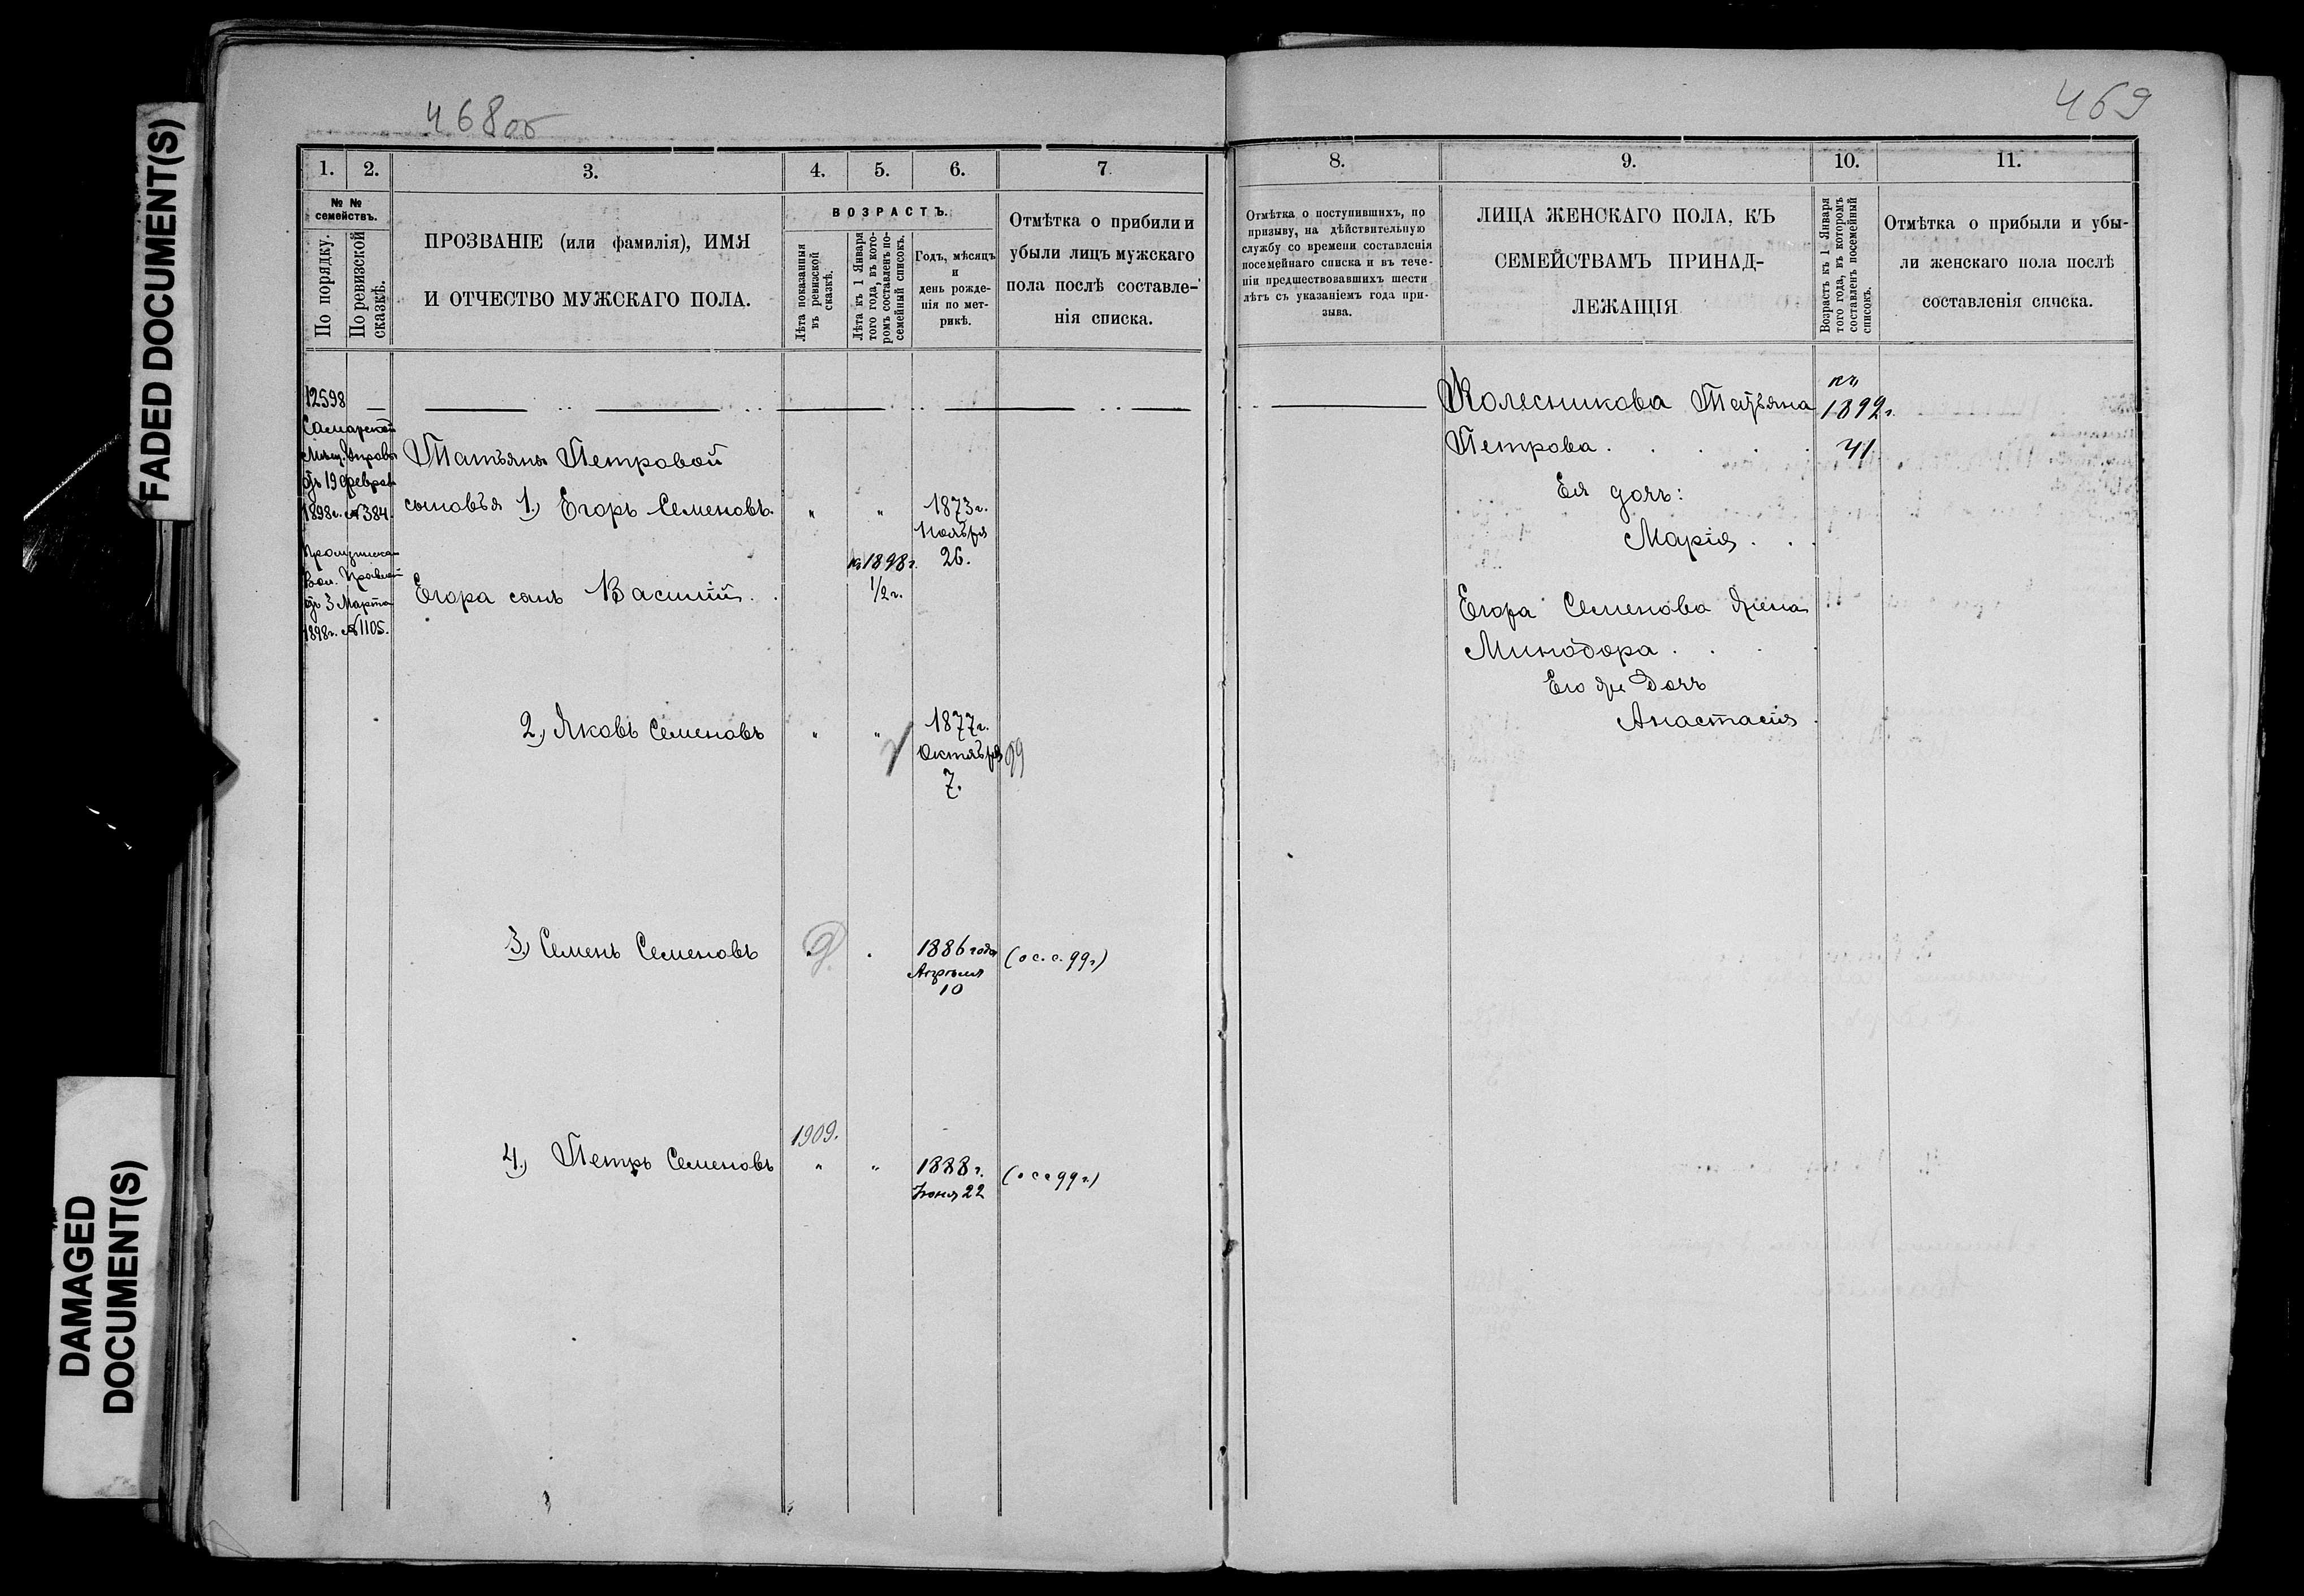 468об
1.
2.
3.
4.
5.
6.
7
№ №
семействъ.
По порядку.
По ревизской
сказкѣ.
ПРОЗВАНІЕ (или фамилія), ИМЯ
И ОТЧЕСТВО МУЖСКАГО ПОЛА.
ВОЗРАСТЪ.
Лѣта показанныя
въ ревизской
сказкѣ.
Лѣта къ 1 Января
того года, въ кото-
ромъ составленъ по-
семейный списокъ.
Годъ, мѣсяцъ
и
день рожде-
нія по мет-
рикѣ.
Отмѣтка о прибили и
убыли лицъ мужскаго
пола послѣ составле-
нія списка.
12598 —
Самарской
Мѣщ. Управы
отъ 19 Феврал
1898г. №384.
Вол. Правлен
отъ 3 Марта
1898г. №1105.
Татьяны Петровой
сыновья 1.) Егоръ Семеновъ. " " 1873г.
Ноября
26.
Егора сынъ Василій. . къ 1898г.
1/2 г.
2.) Яковъ Семеновъ " " 1877г.
Октября 99
7.
3.) Семенъ Семеновъ 1886 года (о с. с. 99г)
Апрѣля
10
1909.
4.) Петръ Семеновъ " " 1888г. (о с с 99г.)
Іюня 22
469
8.
9.
10.
11.
Отмѣтка о поступившихъ, по
призыву, на дѣйствительную
службу со времени составленія
посемейнаго списка и въ тече-
ніи предшествовавшихъ шести
лѣтъ съ указаніемъ года при-
зыва.
ЛИЦА ЖЕНСКАГО ПОЛА, КЪ
СЕМЕЙСТВАМЪ ПРИНАД-
ЛЕЖАЩІЯ
Возрастъ къ 1 Января
того года, въ которомъ
составленъ посемейный
списокъ.
Отмѣтка о прибыли и убы-
ли женскаго пола послѣ
составленія списка.
Колесникова Татьяна къ 1892г.
Петрова. . . . . 41
Ея дочь:
Марія . . .
Егора Семенова жена
Минодора . . . .
Его же дочь
Анастасія .
FADED DOCUMENT(S)
DAMAGED
DOCUMENT(S)